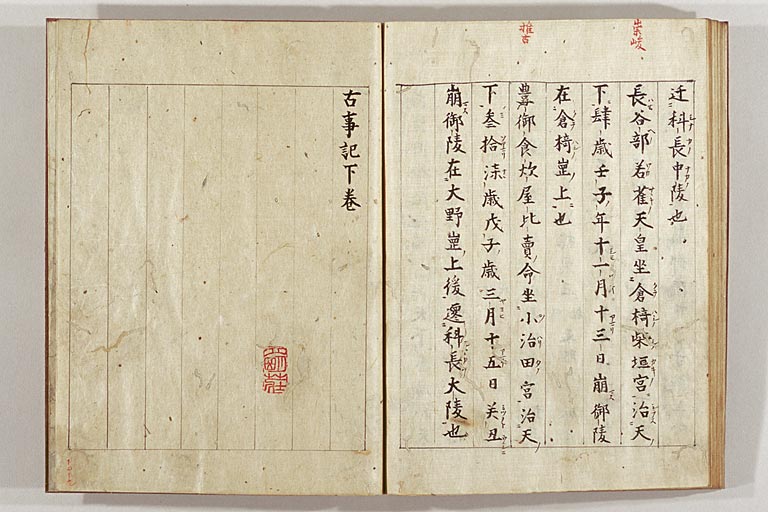 崇峻
推古
迁科長中陵也
長谷部若雀天皇坐倉椅柴垣宮治天
下肆歳壬子年十一月十三日崩御陵
在倉椅崗上也
豊御食炊屋比賣命坐小治田宮治天
下叁拾漆歳戊子歳三月十五日癸丑
崩御陵在大野崗上後遷科長大陵也
古事記下卷